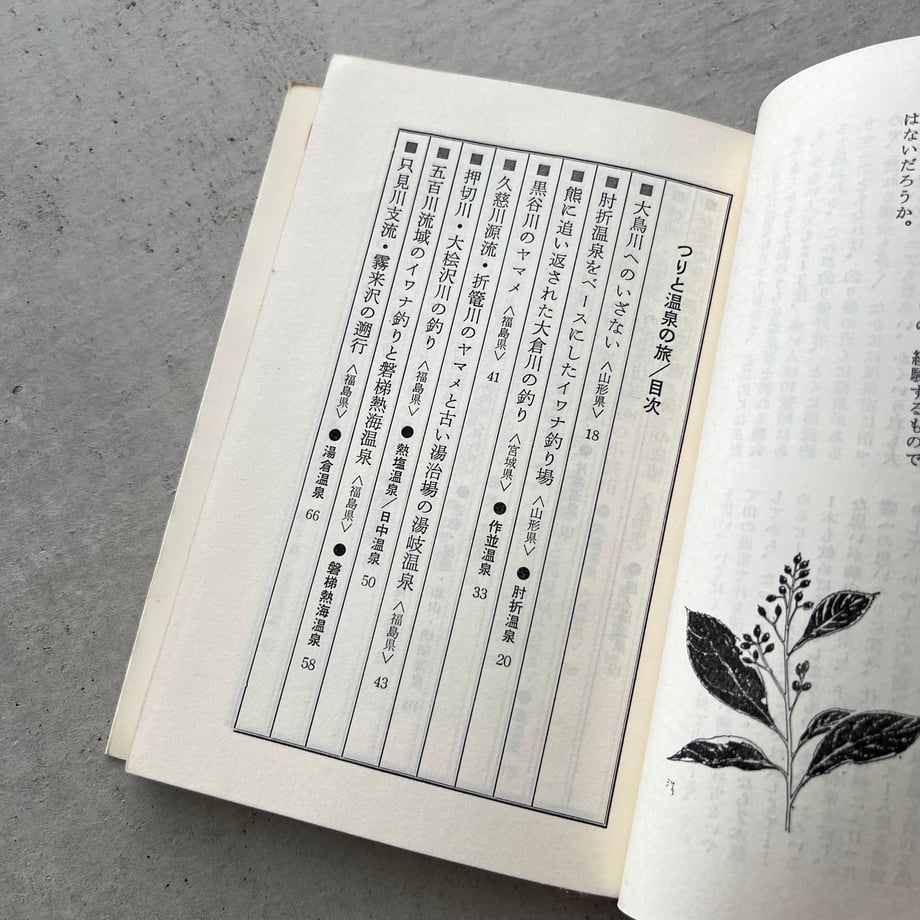 はないだろうか。
経験するもので
つりと温泉の旅／目次
■大鳥川へのいざない〈山形県〉 18
■肘折温泉をベースにしたイワナ釣り場〈山形県〉●肘折温泉 20
■熊に追い返された大倉川の釣り〈宮城県〉●作並温泉 33
■黒谷川のヤマメ〈福島県〉 41
■久慈川源流・折篭川のヤマメと古い湯治場の湯岐温泉〈福島県〉 43
■押切川・大桧沢川の釣り〈福島県〉●熱塩温泉／日中温泉 50
■五百川流域のイワナ釣りと磐梯熱海温泉〈福島県〉●磐梯熱海温泉 58
■只見川支流・霧来沢の遡行〈福島県〉●湯倉温泉 66